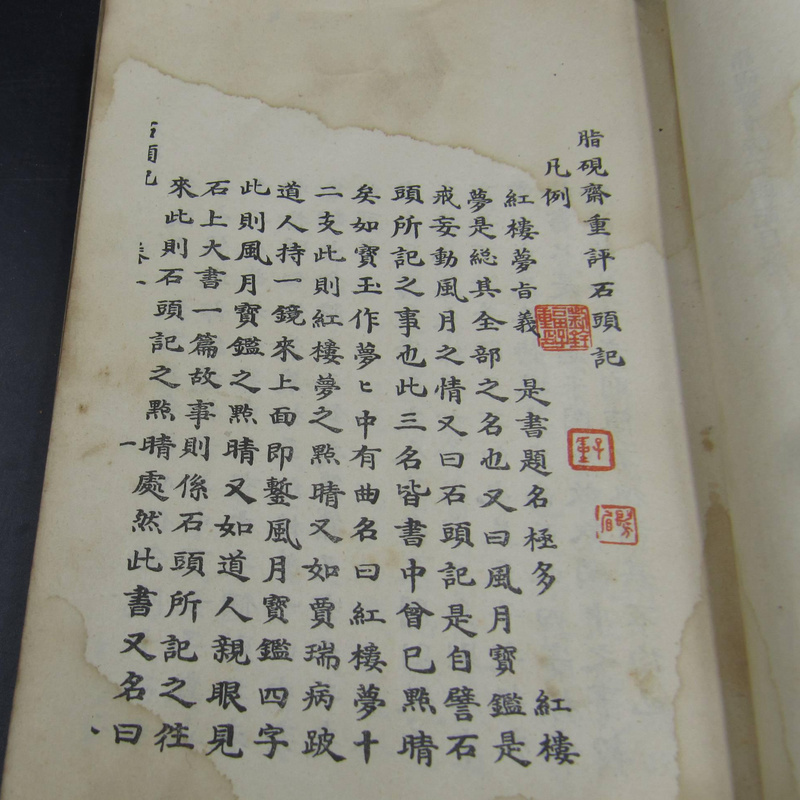 脂硯齋重評石頭記
凡例
紅樓夢旨義 是書題名極多 紅樓
夢是総其全部之名也又曰風月寶鑑是
戒妄動風月之情又曰石頭記是自譬石
頭所記之事也此三名皆書中曾已點晴
矣如寶玉作夢匕中有曲名曰紅樓夢十
二支此則紅樓夢之點晴又如賈瑞病跛
道人持一鏡來上面即鏨風月寶鑑四字
此則風月寶鑑之點晴又如道人親眼見
石上大書一篇故事則係石頭所記之往
來此則石頭記之點晴處然此書又名曰
石頭記 卷一 一